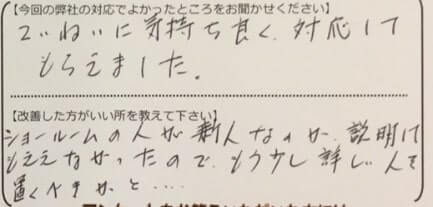 【今回の弊社の対応でよかったところをお聞かせください】
ていねいに気持ち良く、対応して
もらえました。
【改善した方がいい所を教えて下さい】
ショールームの人が新人なのか、説明が
もらえなかったので、もう少し詳しい人を
置くべきかと....